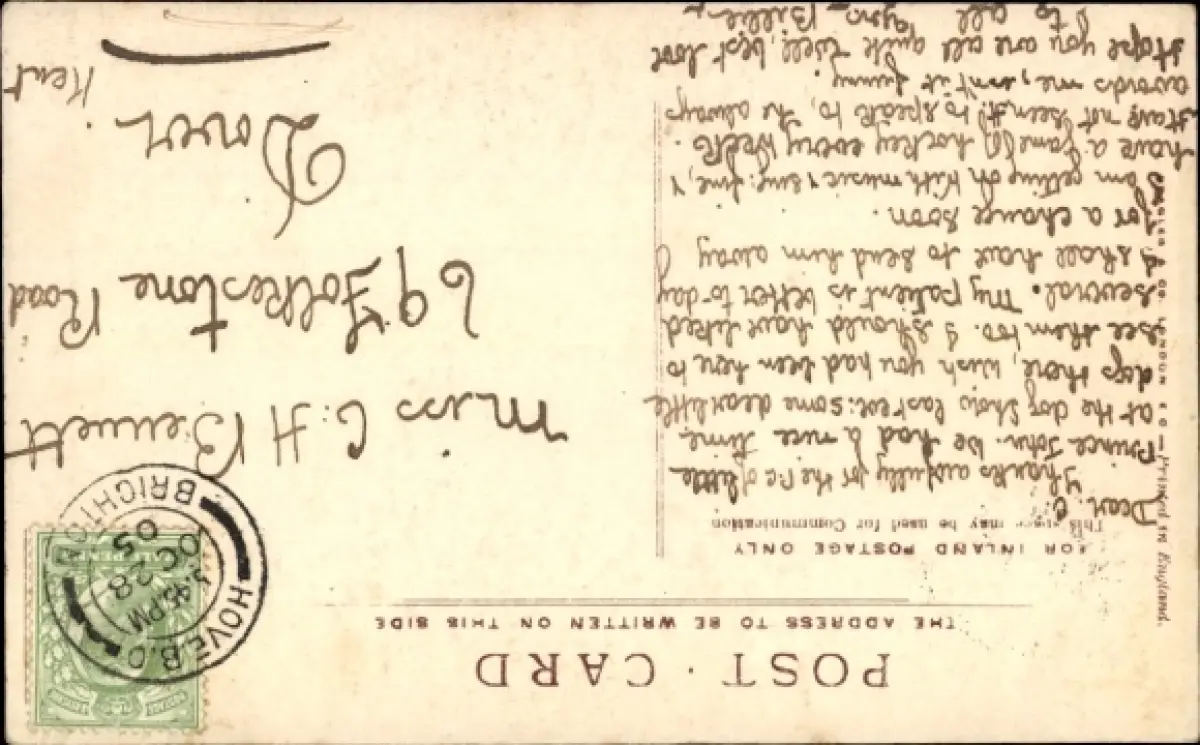 POST · CARD
THE ADDRESS TO BE WRITTEN ON THIS SIDE
FOR INLAND POSTAGE ONLY
This space may be used for Communication
Dear C.
Thanks awfully for the P.C of little
Prince John. We had a nice time
at the dog show last ev: some dear little
dogs there, wish you had been here to
see them too. I should have liked
several. My patient is better to-day
I shall have to send him away
for a change soon.
I am getting on with music & sing: fine, &
have a game of hockey every week.
Have not seen to speak to, he always
avoids me, isn't it funny.
Hope you are all quite well, best love
to all
Yrs. Billie
Miss C. H Bennett
69 Folkestone Road
Dover
Kent
HOVE. B.O
BRIGHTON
3.45 PM
OC 28
05
Printed in England.